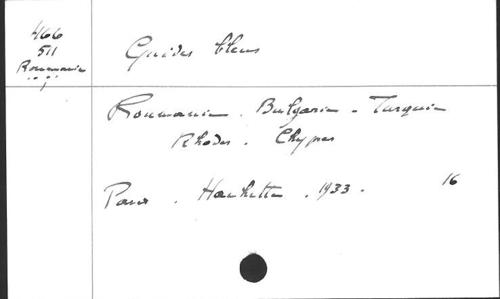 466
511
Roumanie
Guides bleus
Roumanie. Bulgarie - Turquie
Rhodes. Chypres
Paris. Hachette. 1933.
16